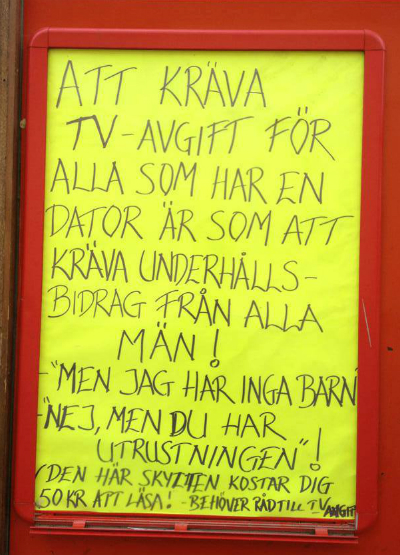 ATT KRÄVA
TV-AVGIFT FÖR
ALLA SOM HAR EN
DATOR ÄR SOM ATT
KRÄVA UNDERHÅLLS-
BIDRAG FRÅN ALLA
MÄN!
-"MEN JAG HAR INGA BARN"
-"NEJ, MEN DU HAR
UTRUSTNINGEN"!
(DEN HÄR SKYLTEN KOSTAR DIG
50 KR ATT LÄSA! - BEHÖVER RÅD TILL TV AVGIFT